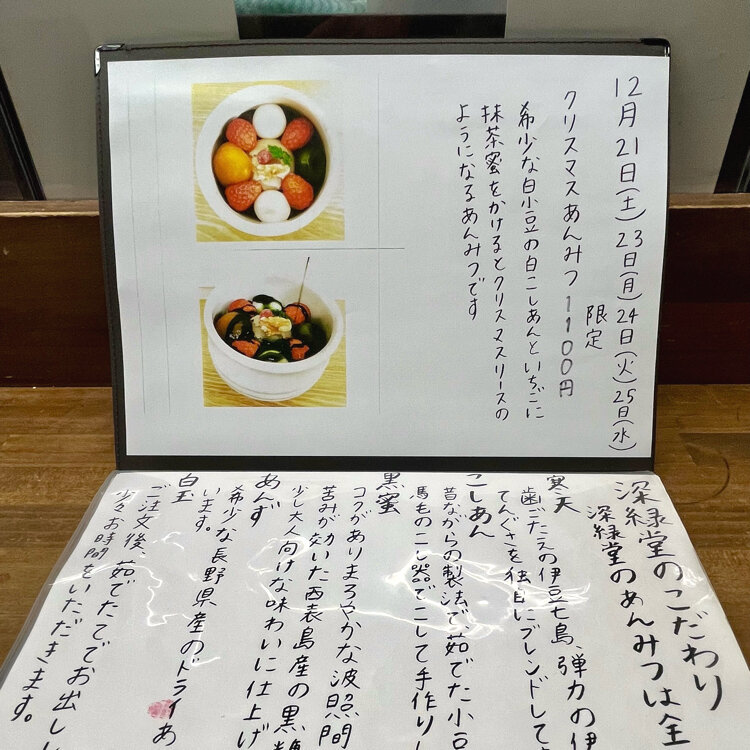 12月21日(土)23日(月)24日(火)25日(水)
限定
クリスマスあんみつ 1100円
希少な白小豆の白こしあんといちごに
抹茶蜜をかけるとクリスマスリースの
ようになるあんみつです
深緑堂のこだわり
深緑堂のあんみつは全
寒天
歯ごたえの伊豆七島、弾力の伊
てんぐさを独自にブレンドして
こしあん
昔ながらの製法で、茹でた小豆
馬毛のこし器でこして手作りし
黒蜜
コクがありまろやかな波照間
苦みが効いた西表島産の黒糖
少し大人向けな味わいに仕上げ
あんず
希少な長野県産のドライあ
います。
白玉
ご注文後、茹でたてでお出しし
少々お時間をいただきます。